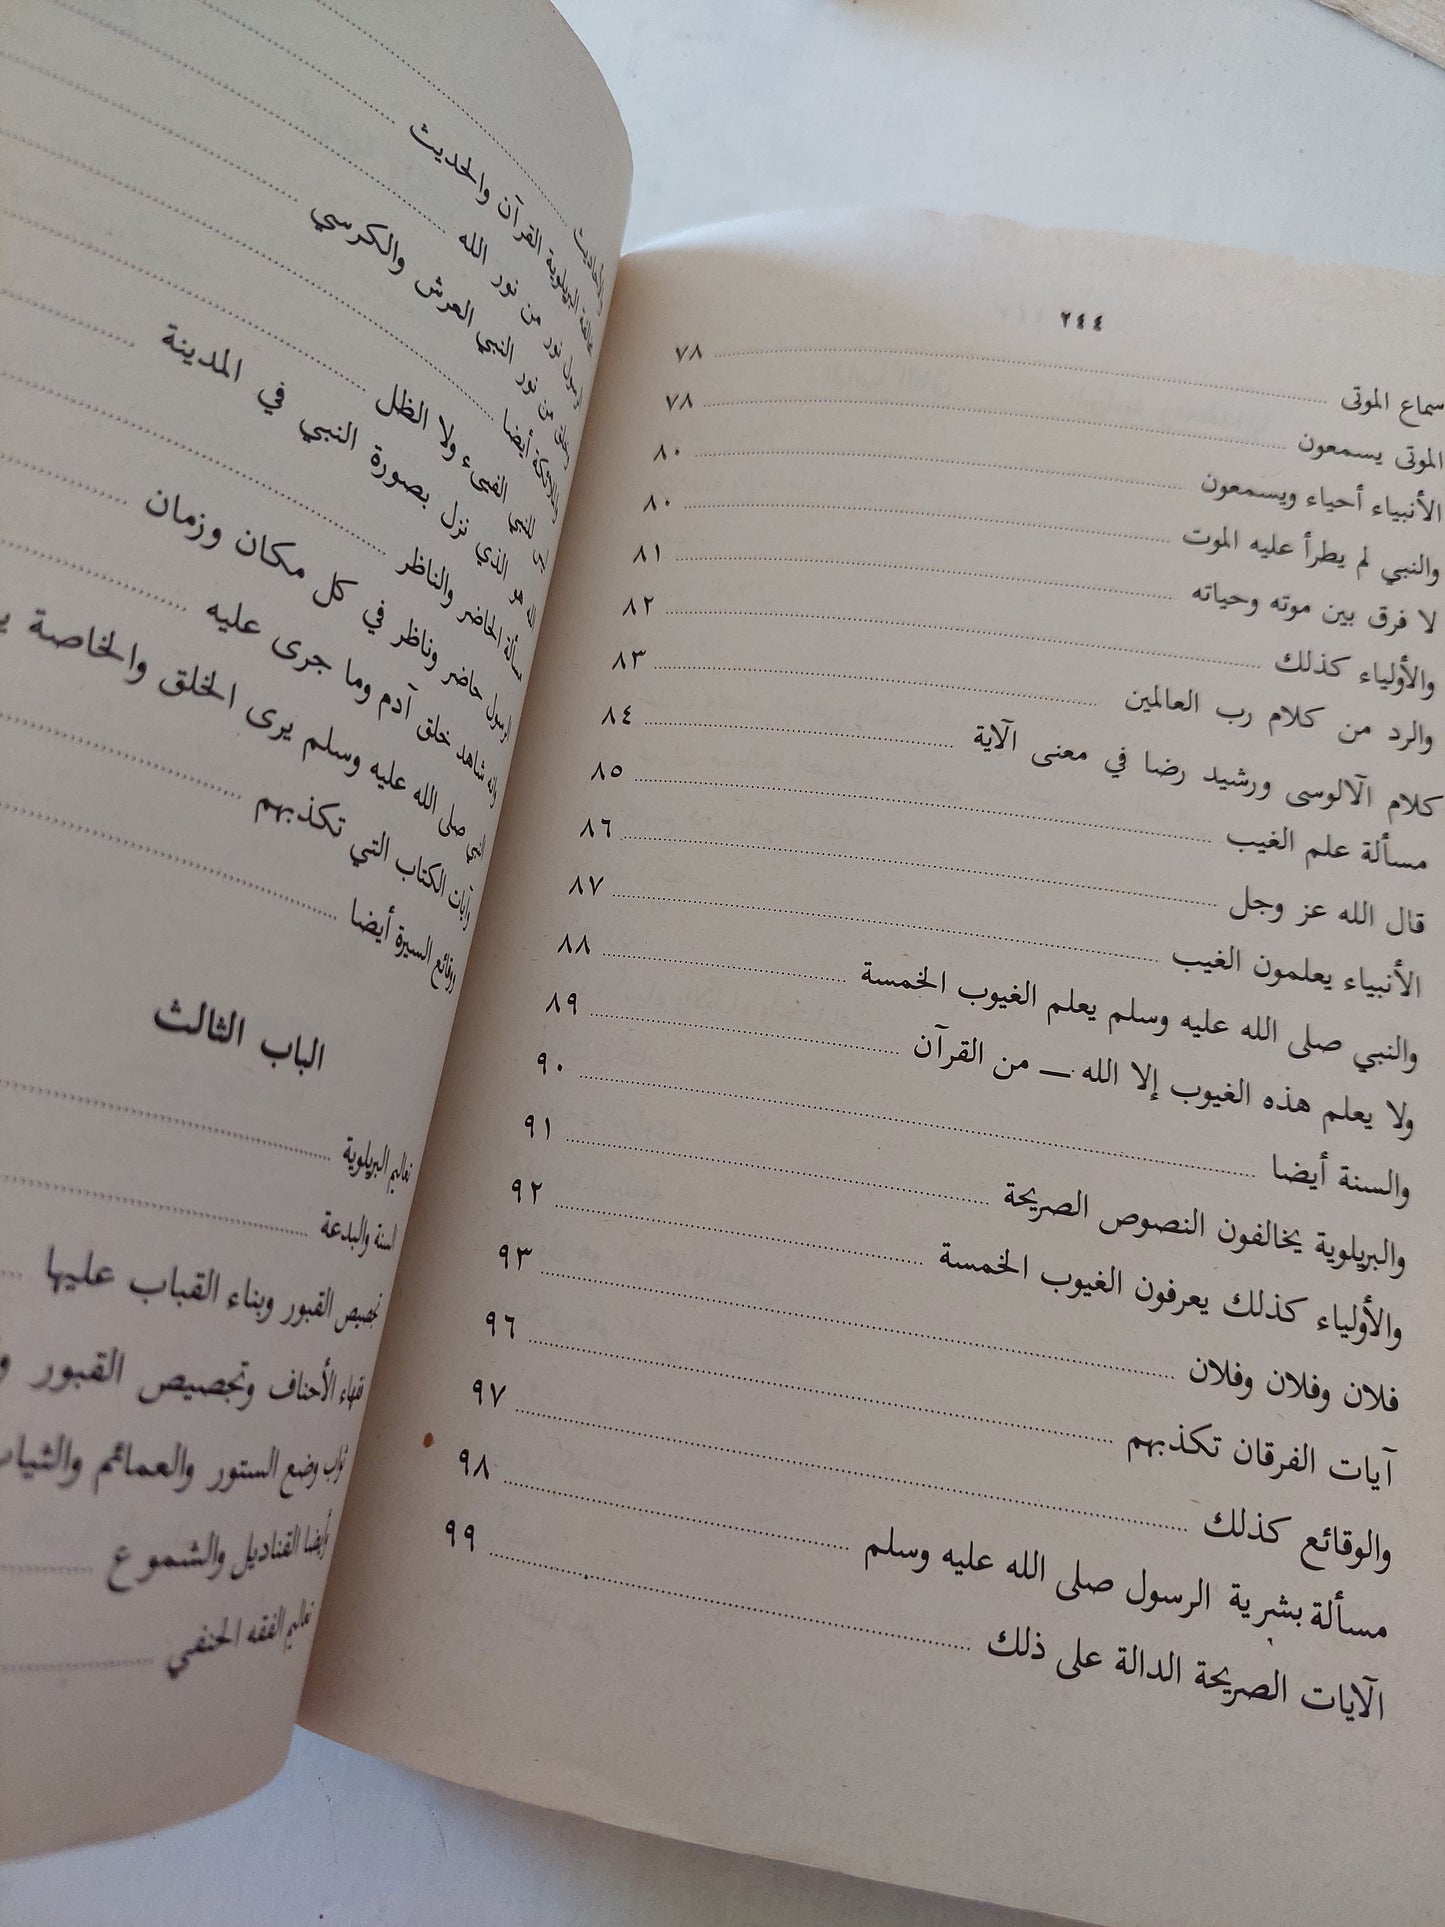 ٢٤٤
سماع الموتى ٧٨
الموتى يسمعون ٧٨
الأنبياء أحياء ويسمعون ٨٠
والنبي لم يطرأ عليه الموت ٨٠
لا فرق بين موته وحياته ٨١
والأولياء كذلك ٨٢
والرد من كلام رب العالمين ٨٣
كلام الآلوسى ورشيد رضا في معنى الآية ٨٤
مسألة علم الغيب ٨٥
قال الله عز وجل ٨٦
الأنبياء يعلمون الغيب ٨٧
والنبي صلى الله عليه وسلم يعلم الغيوب الخمسة ٨٨
ولا يعلم هذه الغيوب إلا الله ــ من القرآن ٨٩
والسنة أيضا ٩٠
والبريلوية يخالفون النصوص الصريحة ٩١
والأولياء كذلك يعرفون الغيوب الخمسة ٩٢
فلان وفلان وفلان ٩٣
آيات الفرقان تكذبهم ٩٦
والوقائع كذلك ٩٧
مسألة بشرية الرسول صلى الله عليه وسلم ٩٨
الآيات الصريحة الدالة على ذلك ٩٩
البريلوية القرآن والحديث
نور من نور الله
من نور النبي العرش والكرسي
والملائكة أيضا
للنبي الفيء ولا الظل
الله هو الذي نزل بصورة النبي في المدينة
مسألة الحاضر والناظر
الرسول حاضر وناظر في كل مكان وزمان
وانه شاهد خلق آدم وما جرى عليه
النبي صلى الله عليه وسلم يرى الخلق والخاصة
وآيات الكتاب التي تكذبهم
ووقائع السيرة أيضا
الباب الثالث
تعاليم البريلوية
السنة والبدعة
تجصيص القبور وبناء القباب عليها
فقهاء الأحناف وتجصيص القبور
ثواب وضع الستور والعمائم والثياب
وأيضا القناديل والشموع
تعاليم الفقه الحنفي